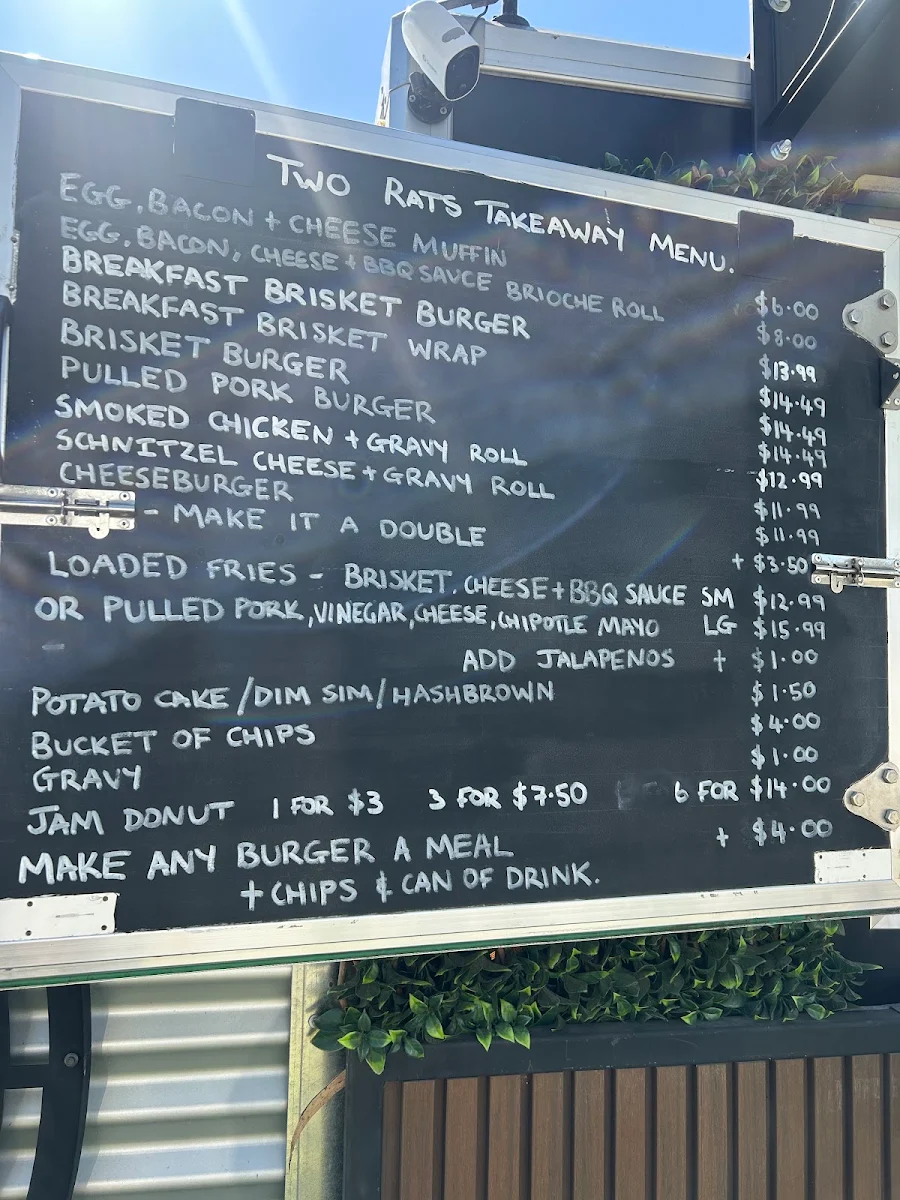 TWO RATS TAKEAWAY MENU.
EGG, BACON + CHEESE MUFFIN $6.00
EGG, BACON, CHEESE + BBQ SAUCE BRIOCHE ROLL $8.00
BREAKFAST BRISKET BURGER $13.99
BREAKFAST BRISKET WRAP $14.49
BRISKET BURGER $14.49
PULLED PORK BURGER $14.49
SMOKED CHICKEN + GRAVY ROLL $12.99
SCHNITZEL CHEESE + GRAVY ROLL $11.99
CHEESEBURGER $11.99
- MAKE IT A DOUBLE + $3.50
LOADED FRIES - BRISKET, CHEESE + BBQ SAUCE SM $12.99
OR PULLED PORK, VINEGAR, CHEESE, CHIPOTLE MAYO LG $15.99
ADD JALAPENOS + $1.00
POTATO CAKE / DIM SIM / HASHBROWN $1.50
BUCKET OF CHIPS $4.00
GRAVY $1.00
JAM DONUT 1 FOR $3 3 FOR $7.50 6 FOR $14.00
MAKE ANY BURGER A MEAL + $4.00
+ CHIPS & CAN OF DRINK.